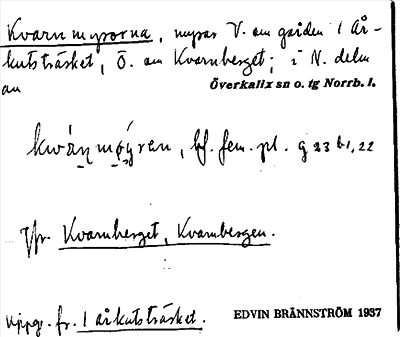 Kvarnmyrorna, myrar V. om gården 1 År-
kutsträsket, Ö. om Kvarnberget; i N. delen
av
Överkalix sn o. tg Norrb. l.
bf. fem. pl. g 23 b1,22
Jfr. Kvarnberget, Kvarnbergen.
uppg. fr. 1 Arkutsträsket.
EDVIN BRÄNNSTRÖM 1937